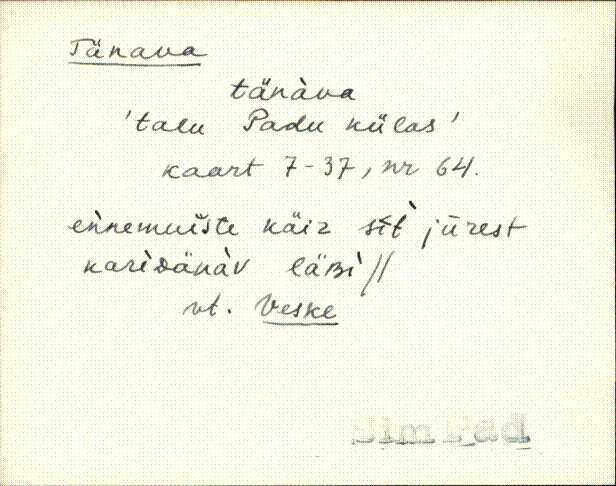 Tänava
tänàva
'talu Padu külas'
kaart 7-37, nr 64.
ennemuiste käiz sìt' jūrest
kariDänàv läBì //
vt. Veske